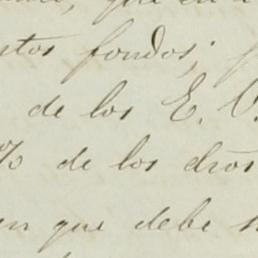 que en
stos fondos;
de los E.
% de los dros
en que debe